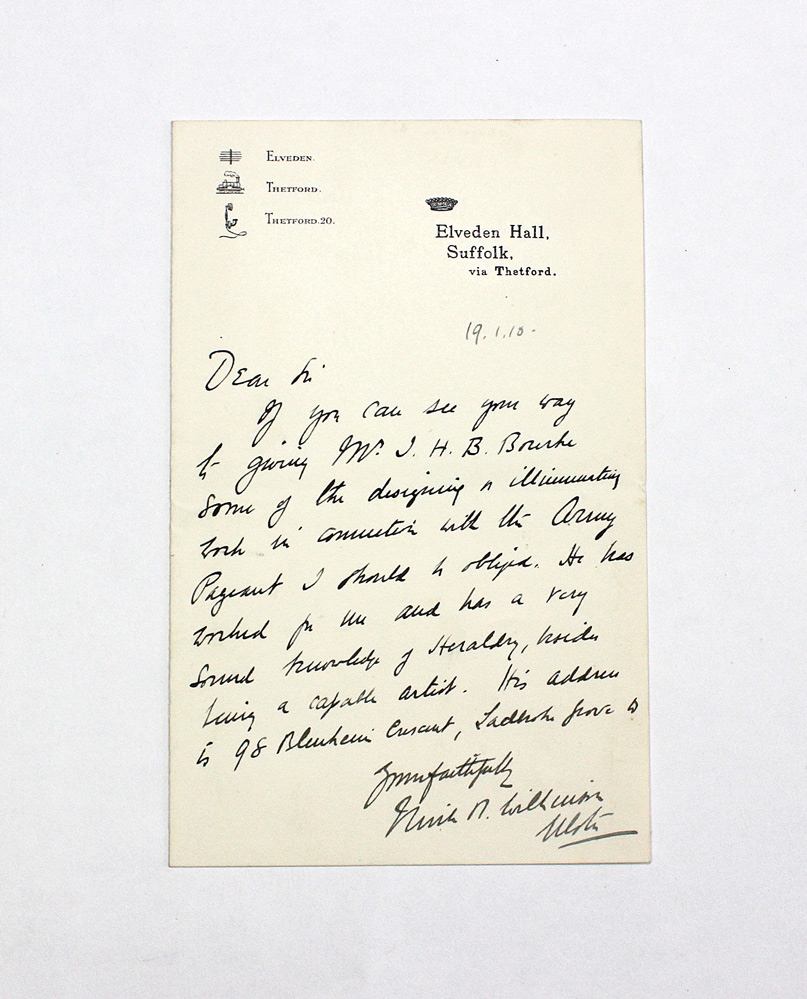 ELVEDEN.
THETFORD.
THETFORD.20.
Elveden Hall,
Suffolk,
via Thetford.
19.1.10.
Dear Sir
If you can see your way
to giving Mr. J. H. B. Bourke
some of the designing or illuminating
work in connection with the Army
Pageant I should be obliged. He has
worked for me and has a very
sound knowledge of Heraldry, besides
being a capable artist. His address
is 98 Blenheim Crescent, Ladbroke Grove W
Yours faithfully
Nevile R. Wilkinson
Ulster